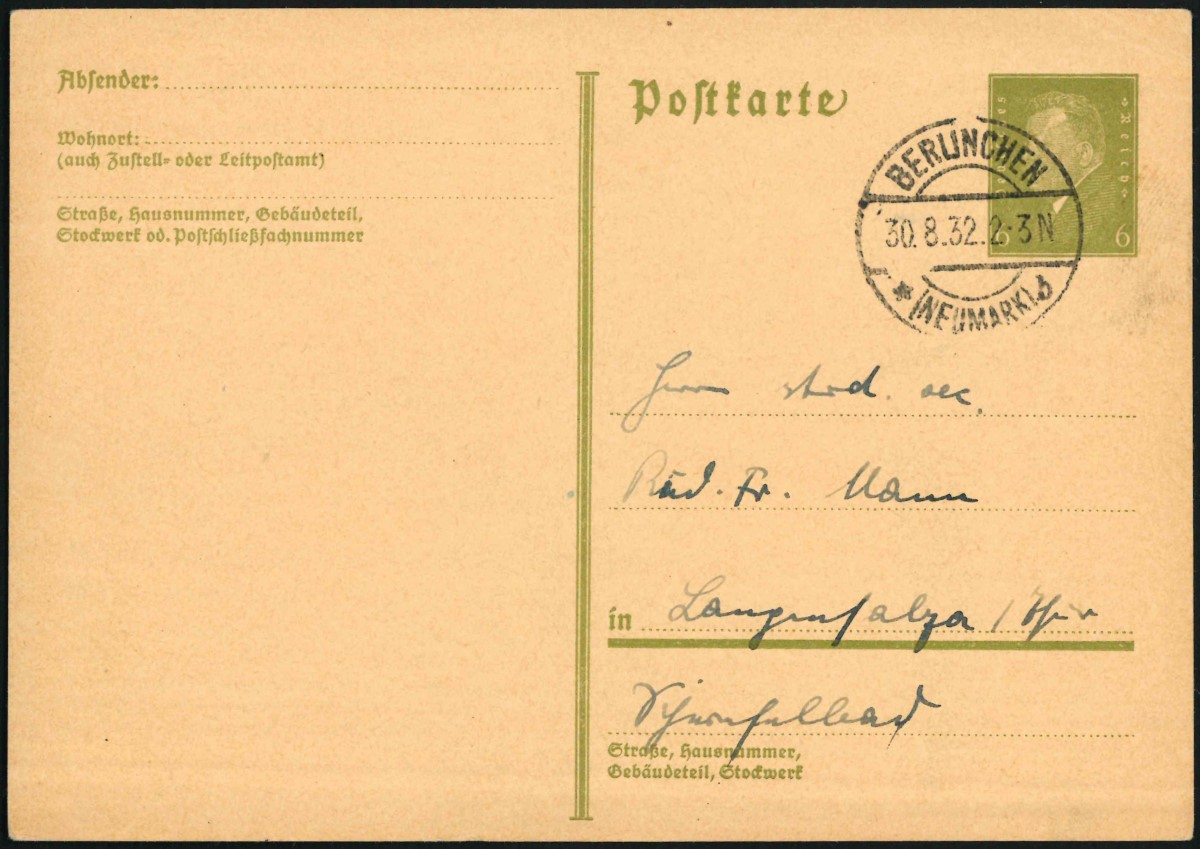 Absender:
Wohnort:
(auch Zustell- oder Leitpostamt)
Straße, Hausnummer, Gebäudeteil,
Stockwerk od. Postschließfachnummer
Postkarte
Reich
6
BERLINCHEN
30.8.32.2-3N
* (NEUMARK) b
Herrn
Fr. Mann
in Langensalza / Thür
Schwefelbad
Straße, Hausnummer,
Gebäudeteil, Stockwerk